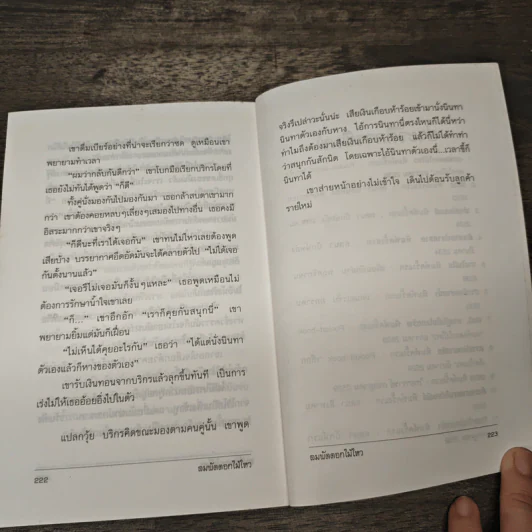 เขาดื่มเบียร์อย่างที่น่าจะเรียกว่าซด ดูเหมือนเขา
พยายามทำเวลา
"ผมว่ากลับกันดีกว่า" เขาโบกมือเรียกบริการโดยที่
เธอยังไม่ทันได้พูดว่า "ก็ดี"
ทั้งคู่นั่งมองกันไปมองกันมา เธอกล้าสบตาเขามาก
กว่า เขาต้องคอยหลบๆเลี่ยงๆเสมองไปทางอื่น เธอคงมี
อิสระมากกว่าเขาจริงๆ
"ก็ดีนะที่เราได้เจอกัน" เขาทนไม่ไหวเลยต้องพูด
เสียบ้าง บรรยากาศอึดอัดมันจะได้คลายตัวไป "ไม่ได้เจอ
กันตั้งนานแล้ว"
"เจอรึไม่เจอมันก็งั้นๆแหละ" เธอพูดเหมือนไม่
ต้องการรักษาน้ำใจเขาเลย
"ก็..." เขาอึกอัก "เราก็คุยกันสนุกนี่" เขา
พยายามยิ้มแต่มันก็เฝื่อน
"ไม่เห็นได้คุยอะไรกัน" เธอว่า "ได้แต่นั่งนินทา
ตัวเองแล้วก็หางของตัวเอง"
เขารับเงินทอนจากบริกรแล้วลุกขึ้นทันที เป็นการ
เร่งไม่ให้เธออ้อยอิ่งไปในตัว
แปลกวุ้ย บริกรคิดขณะมองตามคนคู่นั้น เขาพูด
222
ลมนัดดอกไม้ไหว
จริงรึเปล่าวะนั่นน่ะ เสียเงินเกือบห้าร้อยเข้ามานั่งนินทา
นินทาตัวเองกับหาง ไอ้การนินทานี่ตรงไหนก็ได้นี่หว่า
ทำไมถึงต้องมาเสียเงินเกือบห้าร้อย แล้วก็ไม่ได้ทำท่า
ว่าสนุกกันสักนิด โดยเฉพาะไอ้นินทาตัวเองนี่...เวลาขี้ก็
นินทาได้
เขาส่ายหน้าอย่างไม่เข้าใจ เดินไปต้อนรับลูกค้า
รายใหม่
ลมนัดดอกไม้ไหว
223